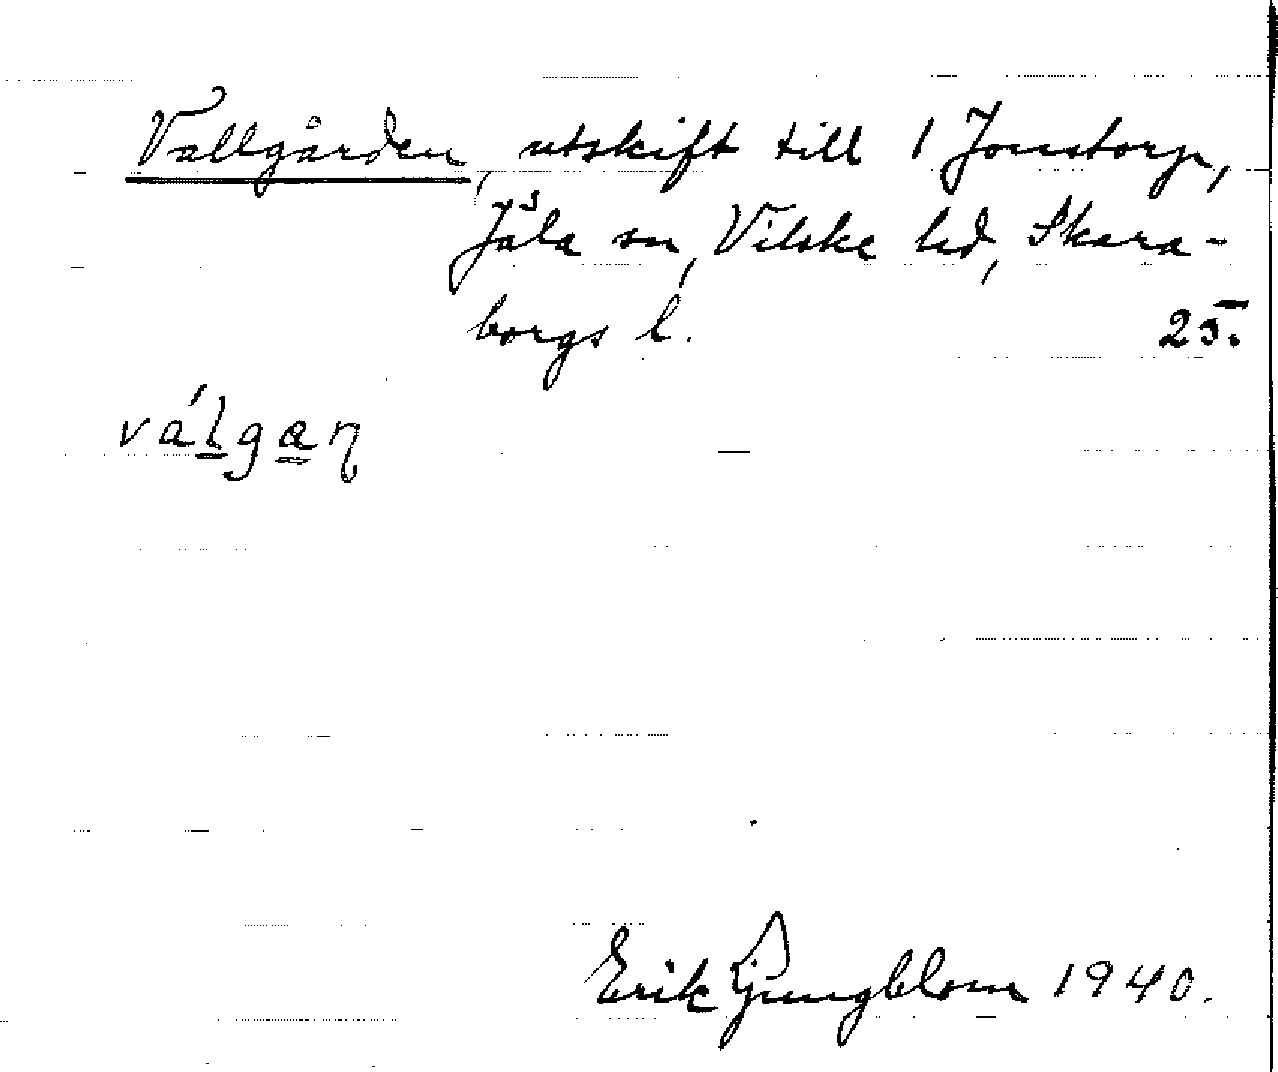 Vallgården, utskift till 1 Jonstorp,
Jåla sn, Vilske hd, Skara-
borgs l. 25.
válgaɳ
Erik Ljungblom 1940.